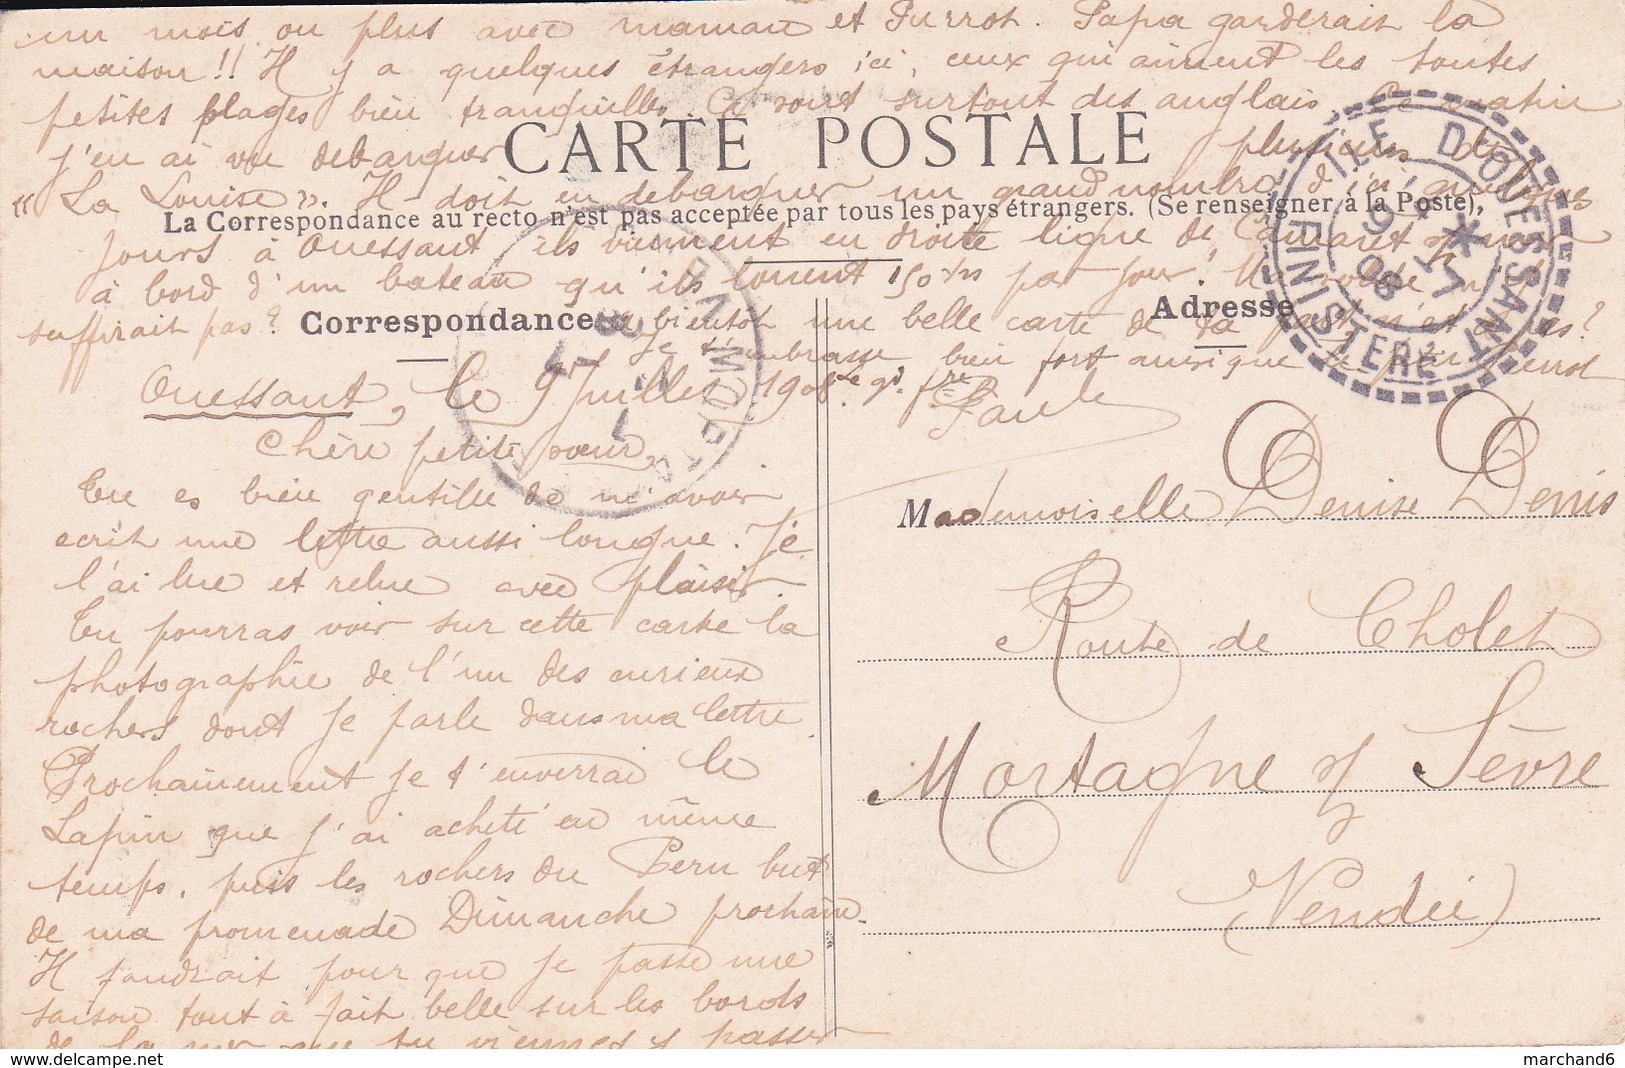 CARTE POSTALE
La Correspondance au recto n'est pas acceptée par tous les pays étrangers. (Se renseigner à la Poste),
Correspondance
Adresse
Ouessant, le 9 Juillet 1908
Chère petite sœur,
Tu es bien gentille de m'avoir
ecrit une lettre aussi longue. Je
l'ai lue et relue avec plaisir.
Tu pourras voir sur cette carte la
photographie de l'un des curieux
rochers dont je parle dans ma lettre.
Prochainement je t'enverrai le
Lapin que j'ai acheté en même
temps, puis les rochers du Pern but
de ma promenade Dimanche prochain.
Il faudrait pour que je passe une
saison tout à fait belle sur les bords
de la mer que tu viennes y passer
un mois ou plus avec maman et Pierrot. Papa garderait la
maison!! Il y a quelques étrangers ici, ceux qui aiment les toutes
petites plages bien tranquilles. Ce sont surtout des anglais. Ce matin
j'en ai vu debarquer plusieurs de
"La Louise". Il doit en debarquer un grand nombre d'ici quelques
jours à Ouessant ils viennent en droite ligne de Camaret
à bord d'un bateau qu'ils louent 150 par jour!
suffirait pas? a bientot une belle carte de ta part n'est-ce pas?
Je t'embrasse bien fort ainsi que Pierrot
Paule
Mademoiselle Denise Denis
Route de Cholet
Mortagne s/ Sèvre
(Vendée)
ILE D'OUESSANT
FINISTERE
9
08
marchand6